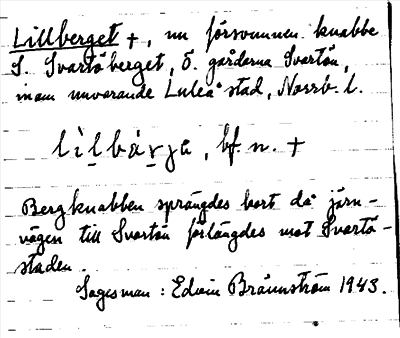 Lillberget +, nu försvunnen knabbe
S. Svartöberget, Ö. gårdarna Svartön,
inom nuvarande Luleå stad, Norrb. l.
lìlbárja, bf. n. +
Bergknabben sprängdes bort då järn-
vägen till Svartön förlängdes mot Svartö-
staden.
Sagesman: Edvin Brännström 1943.